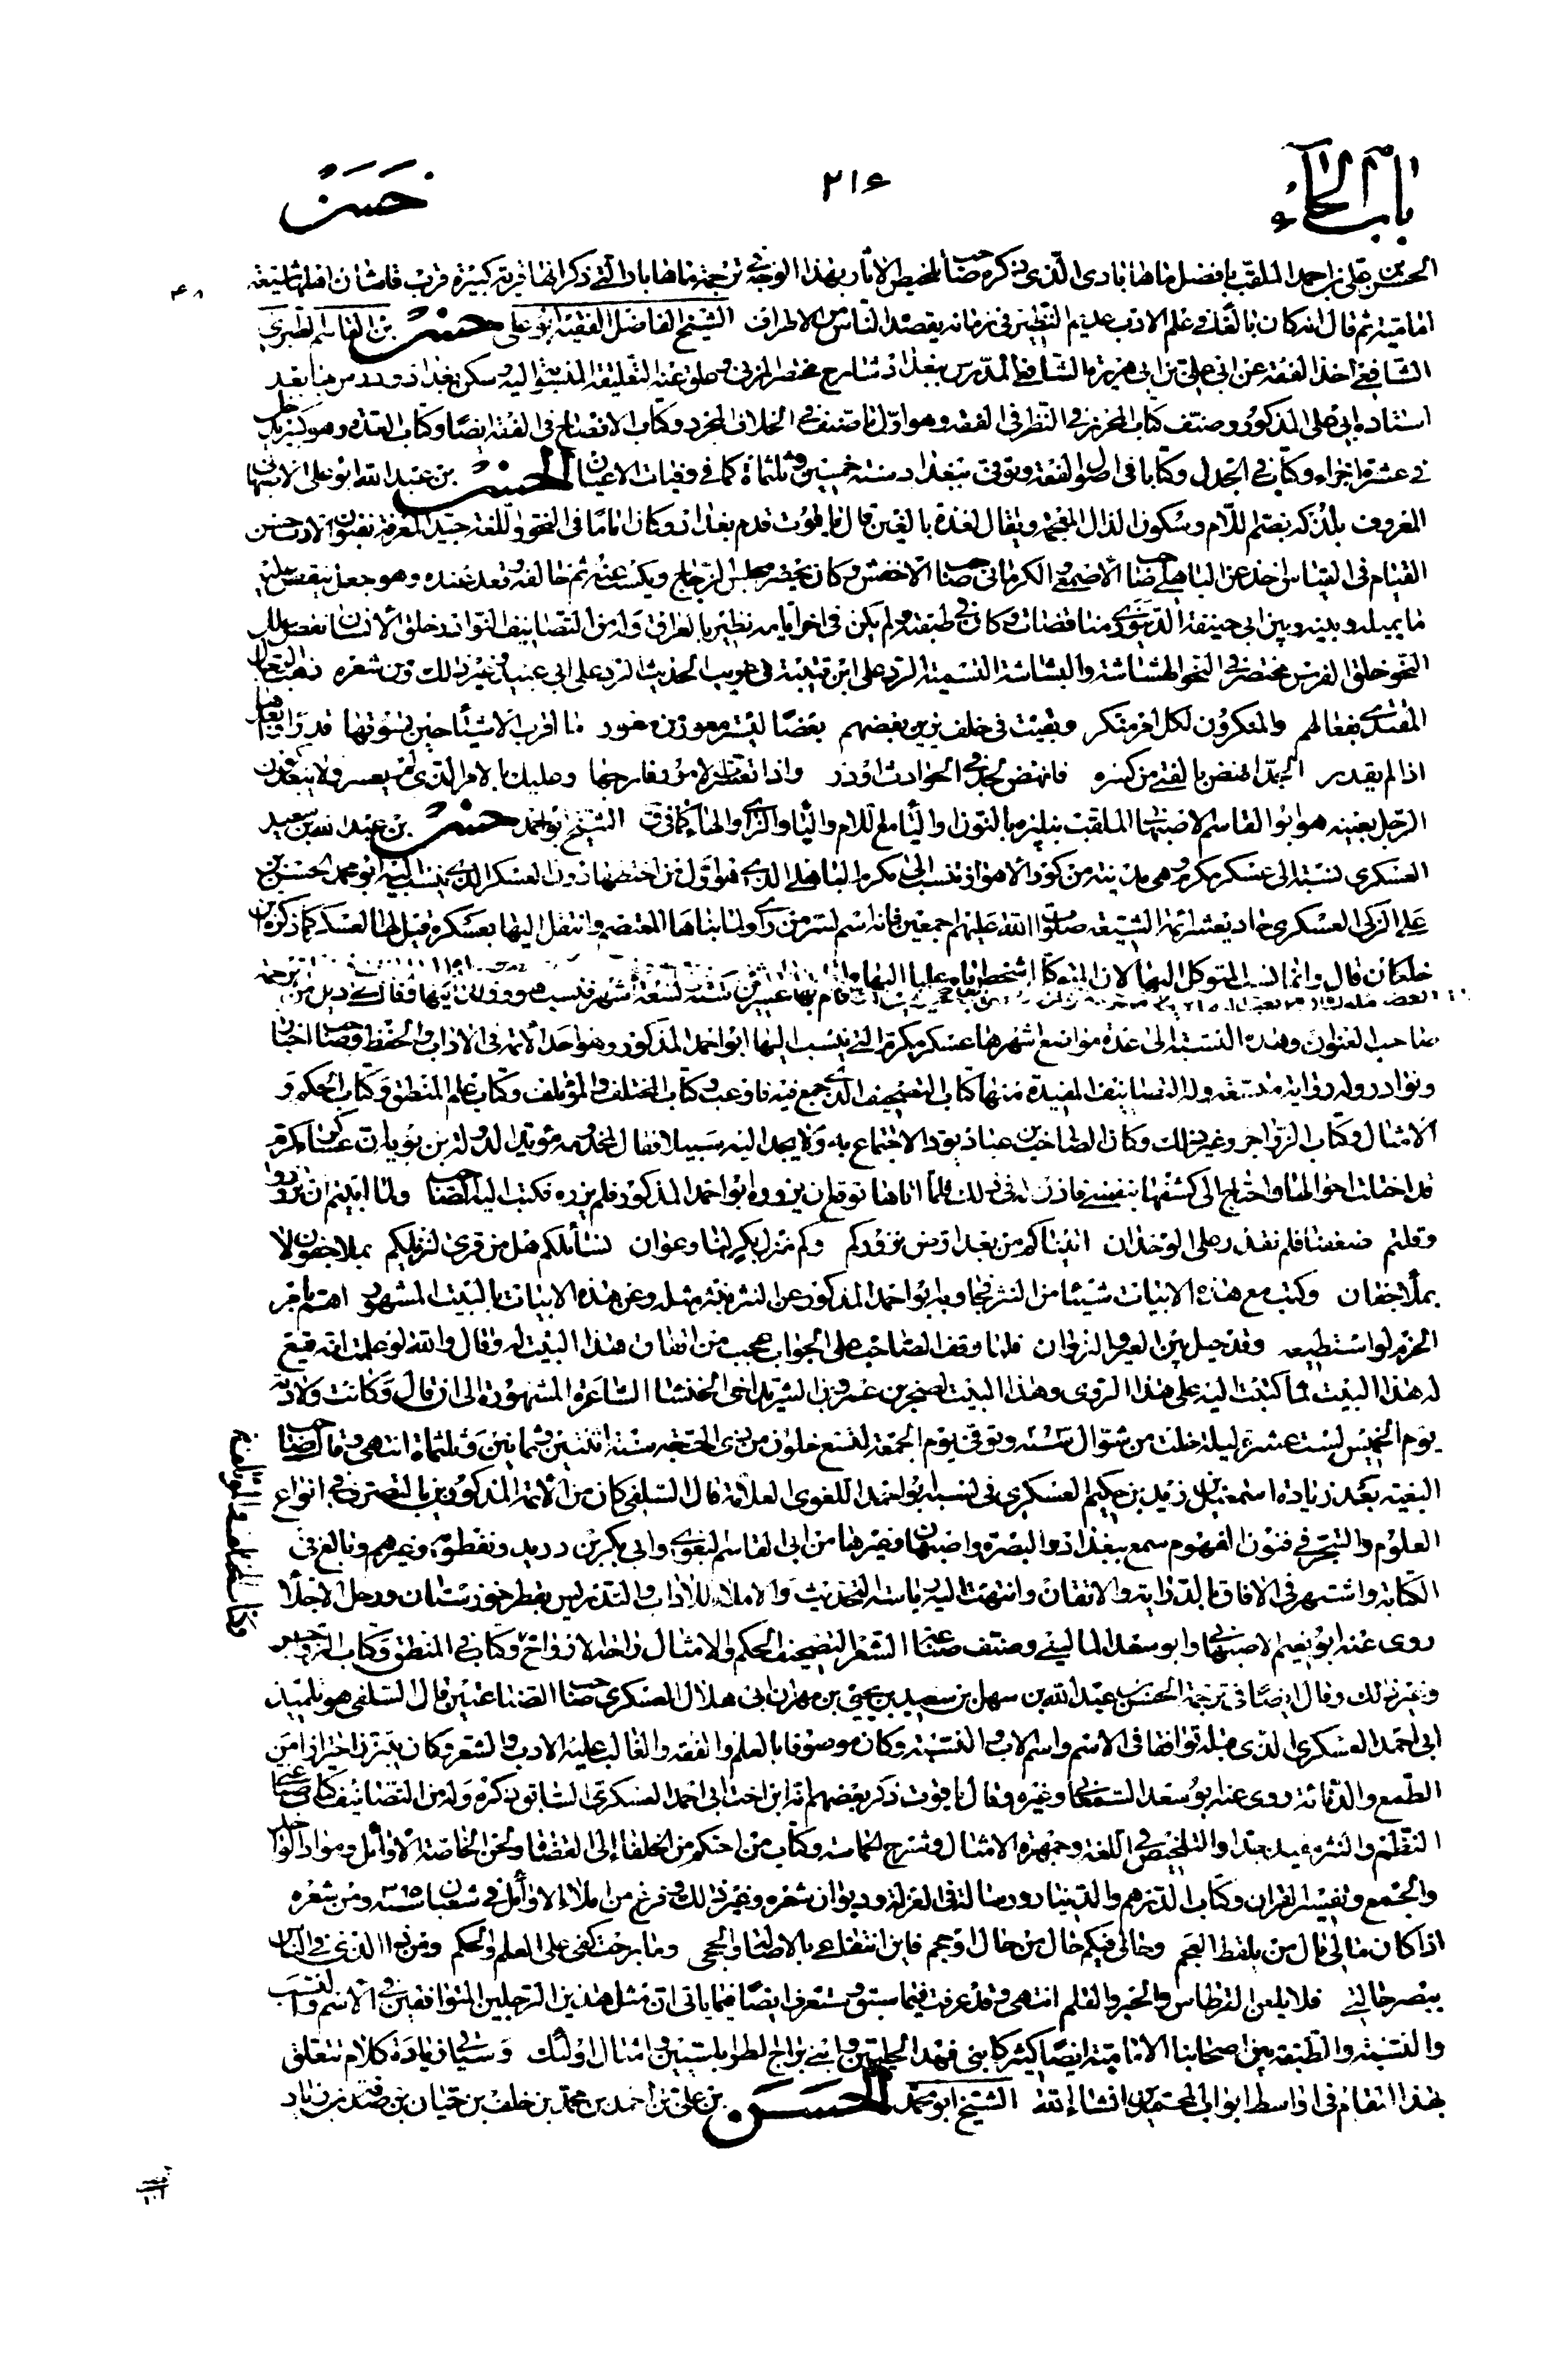 باب الحاء
٢١٦
حسن
الحسن بن علي بن احمد الملقب بافضل ماهابادى الّذى ذكره صاحب تلخيص الاثار بهذا الوجه فى ترجمة ماهاباد الّتى ذكر انها قرية كبيرة قرب قاشان اهلها شيعة
امامية ثم قال انه كان بالغا فى علم الادب عديم النظير فى زمانه يقصده الناس من الاطراف الشيخ الفاضل الفقيه ابو على حسن بن القاسم الطبرى
الشافعى اخذ الفقه عن ابى على بن ابى هريرة الشافعى المدرس ببغداد شارح مختصر المزنى وعلق عنه التعليقة المنسوبة اليه وسكن بغداد ودرس بها بعد
استاده ابى على المذكور وصنف كتاب المحرر فى النظر فى الفقه وهو اول ما صنف فى الخلاف المجرد وكتاب الافصاح فى الفقه ايضا وكتاب العدة وهو كبير يدخل
فى عشرة اجزاء وكتابا فى الجدل وكتابا فى اصول الفقه وتوفى ببغداد سنة خمسين وثلثمائة كما فى وفيات الاعيان الحسن بن عبد الله ابو على الاصبهانى
المعروف بلذكه بضم اللام وسكون الذال المعجمة ويقال لغده بالغين قال ياقوت قدم بغداد وكان اماما فى النحو واللغة جيد المعرفة بفنون الادب حسن
القيام فى القياس اخذ عن الباهلى صاحب الاصمعى والكرمانى صاحب الاخفش وكان يحضر مجلس الزجاج ويكتب عنه ثم خالفه وقعد عنده وهو جعل ينقض عليه
ما يمليه وبينه وبين ابى حنيفة الدينورى مناقضات وكان فى طبقته ولم يكن فى اخر ايامه نظير بالعراق وله من التصانيف النوادر خلق الانسان نقض علل
النحو خلق الفرس مختصر فى النحو الهشاشة والبشاشة التسمية الرد على ابن قتيبة فى غريب الحديث الرد على ابى عبيد وغير ذلك ومن شعره ذهب الرجال
المقتدى بفعالهم والمنكرون لكل امر منكر وبقيت فى خلف يزين بعضهم بعضا ليستر معور من معور ما اقرب الاشياء حين يسوقها قدر وابعدها
اذا لم يقدر الجد انهض بالفتى من كده فانهض بجد فى الحوادث او ذر واذا تعسرت الامور فارجها وعليك بالامر الذى لم يعسر ولا يبعد كون
الرجل بعينه هو ابو القاسم الاصبهانى الملقب بنيلزه بالنون والياء مع اللام والياء والزاى والهاء كما فى ق الشيخ ابو احمد حسن بن عبد الله بن سعيد
العسكرى نسبة الى عسكر مكرم وهى مدينة من كور الاهواز تنسب الى مكرم الباهلى الذى هو اول من اختطها دون العسكر الذى ينسب اليه ابو محمد الحسن بن
على الزكى العسكرى حادى عشر ائمة الشيعة صلوات الله عليهم اجمعين فانه اسم لسر من رأى ولما بناها المعتصم وانتقل اليها بعسكره قيل لها العسكر كما ذكره ابن
خلكان قال وانما نسب المتوكل اليها لان المتوكل اشخص اباه عليا اليها
صاحب العنوان وهذه النسبة الى عدة مواضع اشهرها عسكر مكرم التى ينسب اليها ابو احمد المذكور وهو احد الائمة فى الاداب والحفظ وصاحب اخبار
ونوادر وله رواية متسعة وله التصانيف المفيدة منها كتاب التصحيف الذى جمع فيه فاوعب وكتاب المختلف والمؤتلف وكتاب علم المنطق وكتاب الحكم و
الامثال وكتاب الزواجر وغير ذلك وكان الصاحب بن عباد يود الاجتماع به ولا يجد اليه سبيلا فقال لمخدومه مؤيد الدولة بن بويه ان عسكر مكرم
قد اختلت احوالها واحتاج الى كشفها بنفسى فاذن له فى ذلك فلما اتاها توقع ان يزوره ابو احمد المذكور فلم يزره فكتب اليه الصاحب ولما ابيتم ان تزوروا
وقلتم ضعفنا فلم نقدر على الوخدان اتيناكم من بعد ارض نزوركم وكم منزل بكر لنا وعوان نسائلكم هل من قرى لنزيلكم بملا جفون لا
بملا جفان وكتب مع هذه الابيات شيئا من النثر فجاوبه ابو احمد المذكور عن النثر بنثر مثله وعن هذه الابيات بالبيت المشهور اهم بامر
الحزم لو استطيعه وقد حيل بين العير والنزوان فلما وقف الصاحب على الجواب عجب من اتفاق هذا البيت له وقال والله لو علمت انه يقع
له هذا البيت لما كتبت اليه على هذا الروى وهذا البيت لصخر بن عمرو بن الشريد اخى الخنساء الشاعرة المشهورة الى ان قال وكانت ولادته
يوم الخميس لست عشرة ليلة خلت من شوال وتوفى يوم الجمعة لسبع خلون من ذى الحجة سنة اثنتين وثمانين وثلثمائة انتهى وقال صاحب
البغية بعد زيادة اسمعيل بن زيد بن حكيم العسكرى فى نسبه ابو احمد اللغوى العلامة قال السلفى كان من الائمة المذكورين بالتصرف فى انواع
العلوم والتبحر فى فنون الفهوم سمع ببغداد والبصرة واصبهان وغيرها من ابى القاسم البغوى وابى بكر بن دريد ونفطويه وغيرهم وبالغ فى
الكتابة واشتهر فى الافاق بالدراية والاتقان وانتهت اليه رياسة التحديث والاملاء للاداب والتدريس بقطر خوزستان ورحل الاجلاء
روى عنه ابو نعيم الاصبهانى وابو سعد المالينى وصنف صناعة الشعر التصحيف الحكم والامثال راحة الارواح وكتابا فى المنطق وكتاب الزواجر
وغير ذلك وقال ايضا فى ترجمة الحسن بن عبد الله بن سهل بن سعيد بن يحيى بن مهران ابى هلال العسكرى صاحب الصناعتين قال السلفى هو تلميذ
ابى احمد العسكرى الذى قبله توافقا فى الاسم واسم الاب والنسبة وكان موصوفا بالعلم والفقه والغالب عليه الادب والشعر وكان يتبزز احترازا من
الطمع والدنائة روى عنه ابو سعد السمعانى وغيره وقال ياقوت ذكر بعضهم انه ابن اخت ابى احمد العسكرى السابق ذكره وله من التصانيف كتاب صناعتى
النظم والنثر مفيد جدا والتلخيص فى اللغة وجمهرة الامثال وشرح الحماسة وكتاب من احتكم من الخلفاء الى القضاة ولحن الخاصة الاوائل ونوادر الواحد
والجمع وتفسير القران وكتاب الدرهم والدينار ورسالة فى العزلة وديوان شعره وغير ذلك وفرغ من املاء الاوائل فى شعبان ٣٩٥ ومن شعره
اذا كان مالى مال من يلقط العجم وحالى فيكم حال من حاك او حجم فاين انتفاعى بالاصالة والحجى وما ربحت كفى على العلم والحكم ومن ذا الذى فى الناس
يبصر حالتى فلا يلعن القرطاس والحبر والقلم انتهى وقد عرفت فيما سبق وستعرف ايضا فيما ياتى ان مثل هذين الرجلين المتوافقين فى الاسم والنسب
والنسبة والطبقة بين اصحابنا الامامية ايضا كثير كابنى فهد الحليين وابنى براج الطرابلسيين وامثال اولئك وسياتى زيادة كلام تتعلق
بهذا المقام فى اواسط ابواب المحمدين انشاء الله الشيخ ابو محمد الحسن بن على بن احمد بن محمد بن خلف بن حيان بن صدقة بن زياد